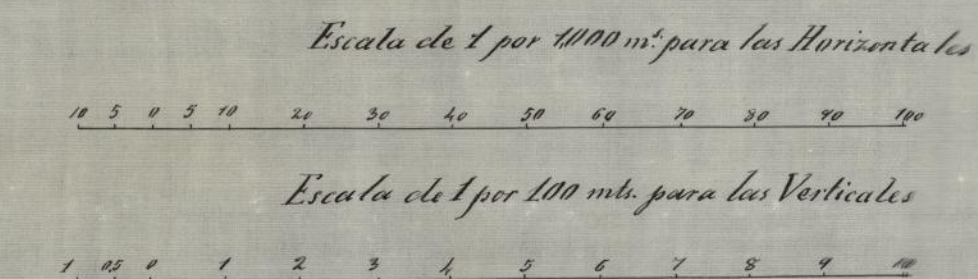 Escala de 1 por 1,000 mˢ. para las Horizontales
10 5 0 5 10 20 30 40 50 60 70 80 90 100
Escala de 1 por 100 mts. para las Verticales
1 0,5 0 1 2 3 4 5 6 7 8 9 10